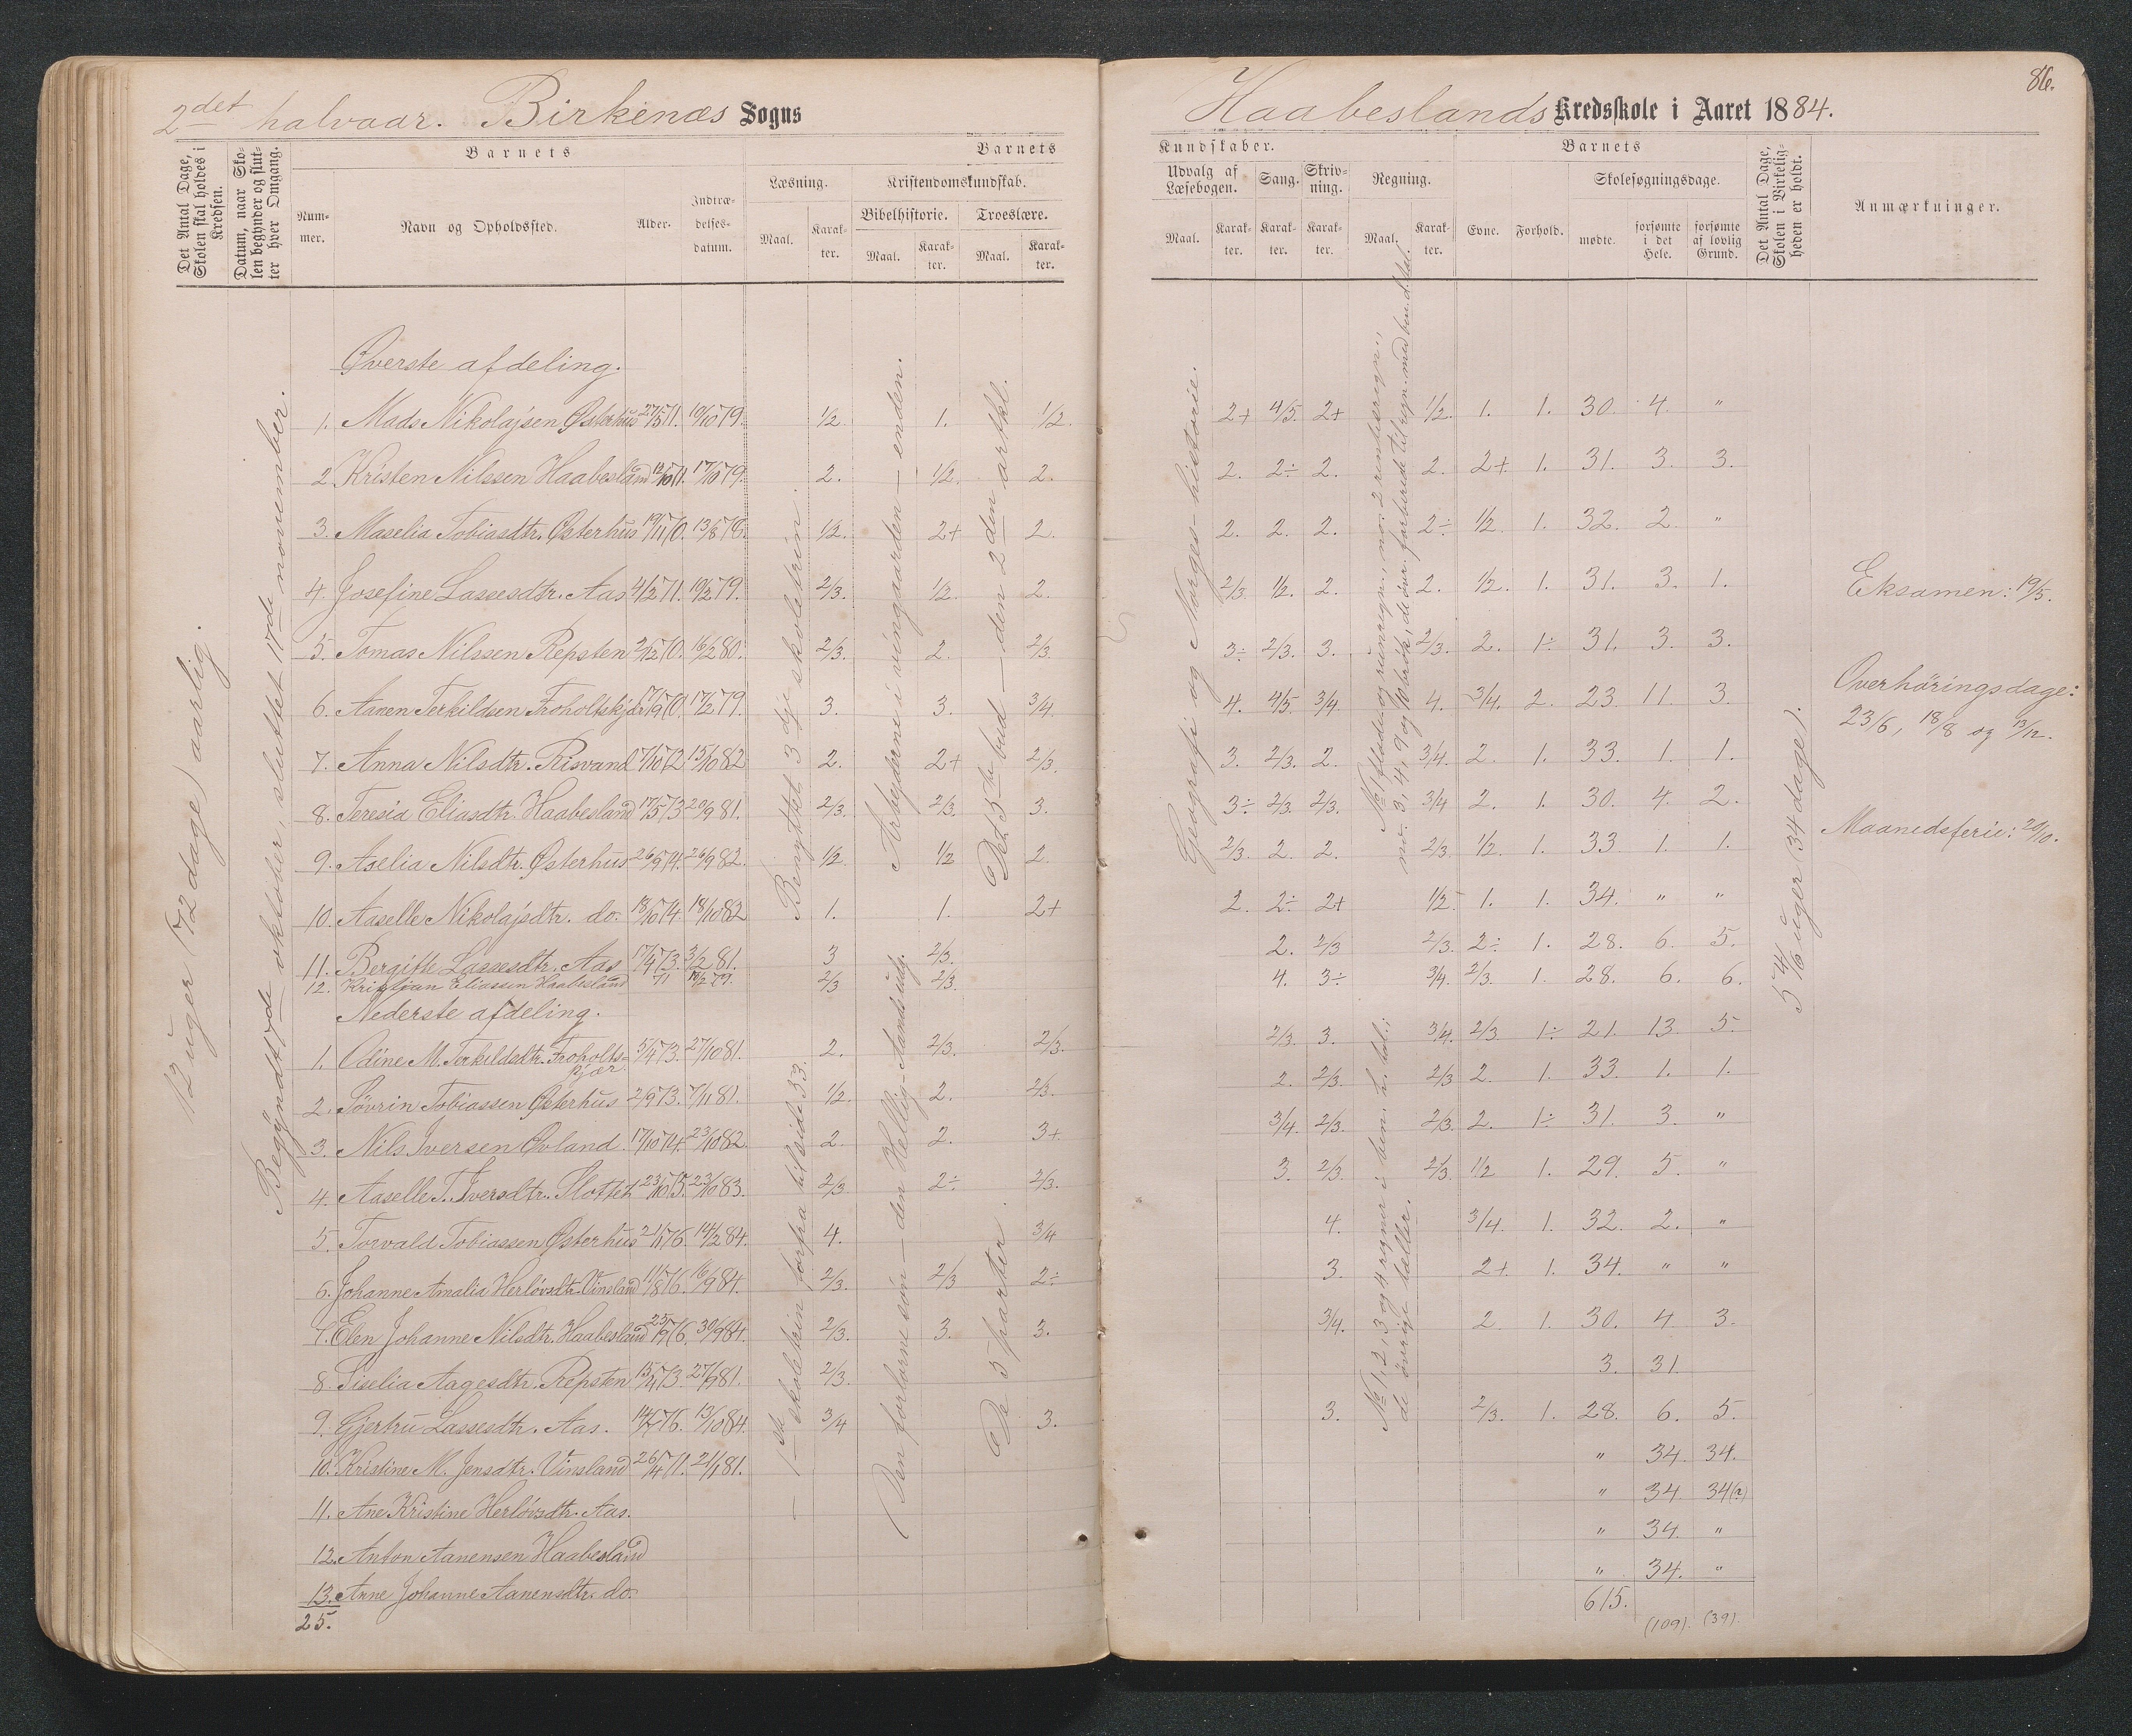 2det halvaar. Birkenæs Sogns
Det Antal Dage, Skolen skal holdes i Kredsen.
Datum, naar Skolen begynder og slutter hver Omgang.
Barnets
Barnets
Nummer.
Navn og Opholdssted.
Alder.
Indtrædelsesdatum.
Læsning.
Kristendomskundskab.
Bibelhistorie.
Troeslære.
Maal.
Karakter.
Maal.
Karakter.
Maal.
Karakter.
12 uger (72 dage) aarlig.
Begyndt 7de oktober, sluttet 17de november.
Benyttet 3dje skoletrin.
Arbejderne i vingaarden – enden.
Det 5te bud – den 2den artkl.
Øverste afdeling.
1. Mads Nikolajsen Østerhus 27/5 71. 10/10 79. 1/2. 1. 1/2.
2. Kristen Nilssen Haabesland 12/10 71. 17/10 79. 2. 1/2. 2.
3. Maselia Tobiasdtr. Østerhus 19/11 70. 13/8 78. 1/2. 2+ 2.
4. Josefine Lassesdtr. Aas 4/2 71. 10/2 79. 2/3. 1/2. 2.
5. Tomas Nilssen Repsten 2/12 70. 16/2 80. 2/3. 2. 2/3.
6. Aanen Terkildsen Froholtskjær 17/9 70. 17/2 79. 3. 3. 3/4.
7. Anna Nilsdtr. Risvand 7/10 72. 15/10 82 2. 2+ 2/3.
8. Teresia Eliasdtr. Haabesland 17/5 73 20/9 81. 2/3. 2/3. 3.
9. Aselia Nilsdtr. Østerhus 26/9 74. 26/9 82. 1/2. 1/2 2.
10. Aaselle Nikolajsdtr. do. 18/10 74. 18/10 82 1. 1. 2+
11. Bergitte Lassesdtr. Aas 17/4 73. 3/2 81. 3 2/3.
12. Kristian Eliassen Haabesland 71 10/2 79. 2/3 2/3.
Nederste afdeling.
1. Odine M. Terkildsdtr. Froholtskjær. 5/4 73. 27/10 81. 2. 2/3. 2/3.
2. Sövrin Tobiassen Østerhus 2/9 73. 7/11 81. 1/2. 2. 2/3.
3. Nils Iversen Øvland. 17/10 74. 23/10 82. 2. 2. 3+.
4. Aaselle T. Iversdtr. Slottet 23/10 75. 23/10 83. 2/3 2÷ 2/3.
5. Torvald Tobiassen Østerhus 21/1 76. 14/2 84. 4. 3/4
6. Johanne Amalia Herlövsdtr. Vinsland 11/8 76. 16/9 84. 2/3. 2/3 2÷
7. Elen Johanne Nilsdtr. Haabesland 25/9 76. 30/9 84. 2/3. 3. 3.
8. Siselia Aagesdtr. Repsten 15/4 73. 27/9 81. 2/3.
9. Gjertru Lassesdtr. Aas. 76. 13/10 84. 3/4 3.
10. Kristine M. Jensdtr. Vinsland 26/4 71. 21/1 81.
11. Ane Kristine Herlövsdtr. Aas.
12. Anton Aanensen Haabesland
13. Anne Johanne Aanensdtr. do.
25.
– 1ste skoletrin forfra til side 53.
(Den forlorne sön – den Hellig-Aands udg.
De 5 parter.
86.
Haabeslands Kredsskole i Aaret 1884.
Kundskaber.
Barnets
Udvalg af Læsebogen.
Sang.
Skrivning.
Regning.
Evne.
Forhold.
Skolesøgningsdage.
Det Antal Dage, Skolen i Virkeligheden er holdt.
Anmærkninger.
Maal.
Karakter.
Karakter.
Karakter.
Maal.
Karakter.
mødte.
forsømte i det Hele.
forsømte af lovlig Grund.
Geografi og Norges historie.
No 1 flade- og rumregn., no. 2 renteregn.,
no. 3, 4, 9 og 10 brök, de övr. forberedt til regn. med ben. d. tal.
2+ 4/5. 2+ 1/2. 1. 1. 30. 4. "
2. 2÷ 2. 2. 2+ 1. 31. 3. 3.
2. 2. 2. 2÷ 1/2. 1. 32. 2. "
2/3. 1/2. 2. 2. 1/2. 1. 31. 3. 1.
3÷ 2/3. 3. 2/3. 2. 1÷ 31. 3. 3.
4. 4/5. 3/4. 4. 3/4. 2. 23. 11. 3.
3. 2/3. 2. 3/4. 2. 1. 33. 1. 1.
3÷ 2/3. 2/3. 3/4 2. 1. 30. 4. 2.
2/3. 2. 2. 2/3. 1/2. 1. 33 1. 1.
2. 2÷ 2+ 1/2. 1. 1. 34. " "
2. 2/3 2/3. 2÷ 1. 28. 6. 5.
4. 3÷ 3/4. 2/3. 1. 28. 6. 6.
2/3. 3. 3/4. 2/3. 1÷ 21. 13. 5.
2. 2/3. 2/3 2. 1. 33. 1. 1.
3/4. 2/3. 2/3. 2. 1÷ 31. 3. "
3. 2/3. 2/3. 1/2 1. 29. 5. "
4. 3/4. 1. 32. 2. "
3. 2+. 1. 34. " "
3/4. 2. 1. 30. 4 3.
3. 31
3. 2/3. 1. 28. 6. 5.
" 34. 34.
" 34. 34(?)
" 34. "
" 34. "
615. (109). (39).
No 1, 2, 3 og 4 regner i ben. h. tal;
de övrige tæller.
5 4/6 uger (34 dage).
Eksamen: 19/5.
Overhöringsdage:
23/6, 18/8 og 13/12.
Maanedsferie: 20/10.